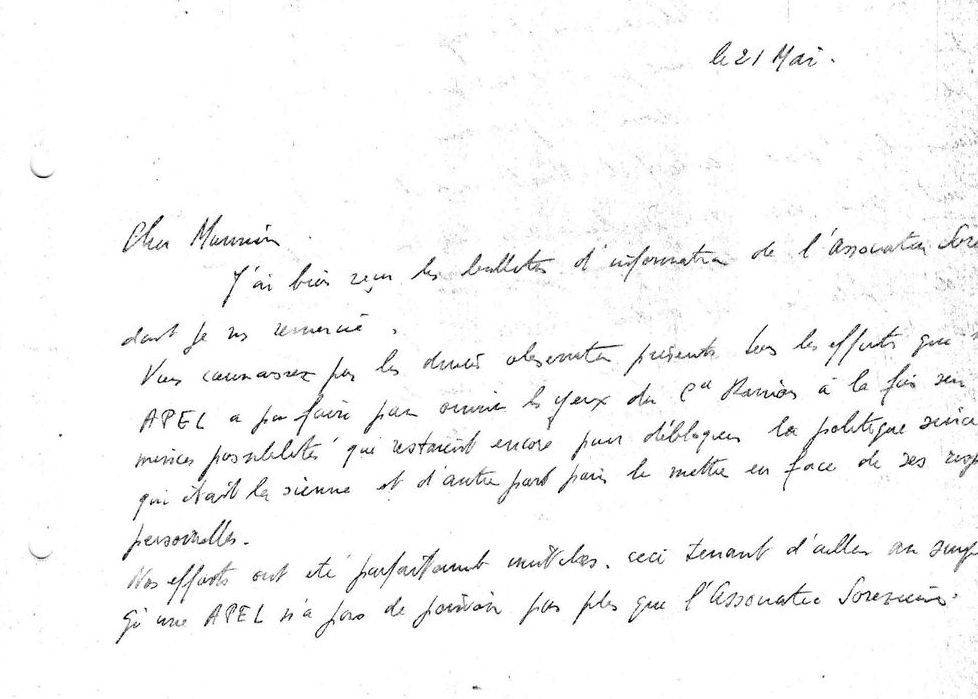 le 21 Mai.
Cher Monsieur.
J'ai bien reçu les bulletins d'information de l'Association
dont je vs remercie.
Vous connaissez par les divers présents tous les efforts que
APEL a pu faire pour ouvrir les yeux du à la fois sur
minces possibilités qui restaient encore pour débloquer la politique
qui était la sienne et d'autre part pour le mettre en face de ses
personnelles.
Nos efforts ont été parfaitement inutiles. ceci tenant d'ailleurs au
Qu'une APEL n'a pas de pouvoir pas plus que l'Association Sorézienne.